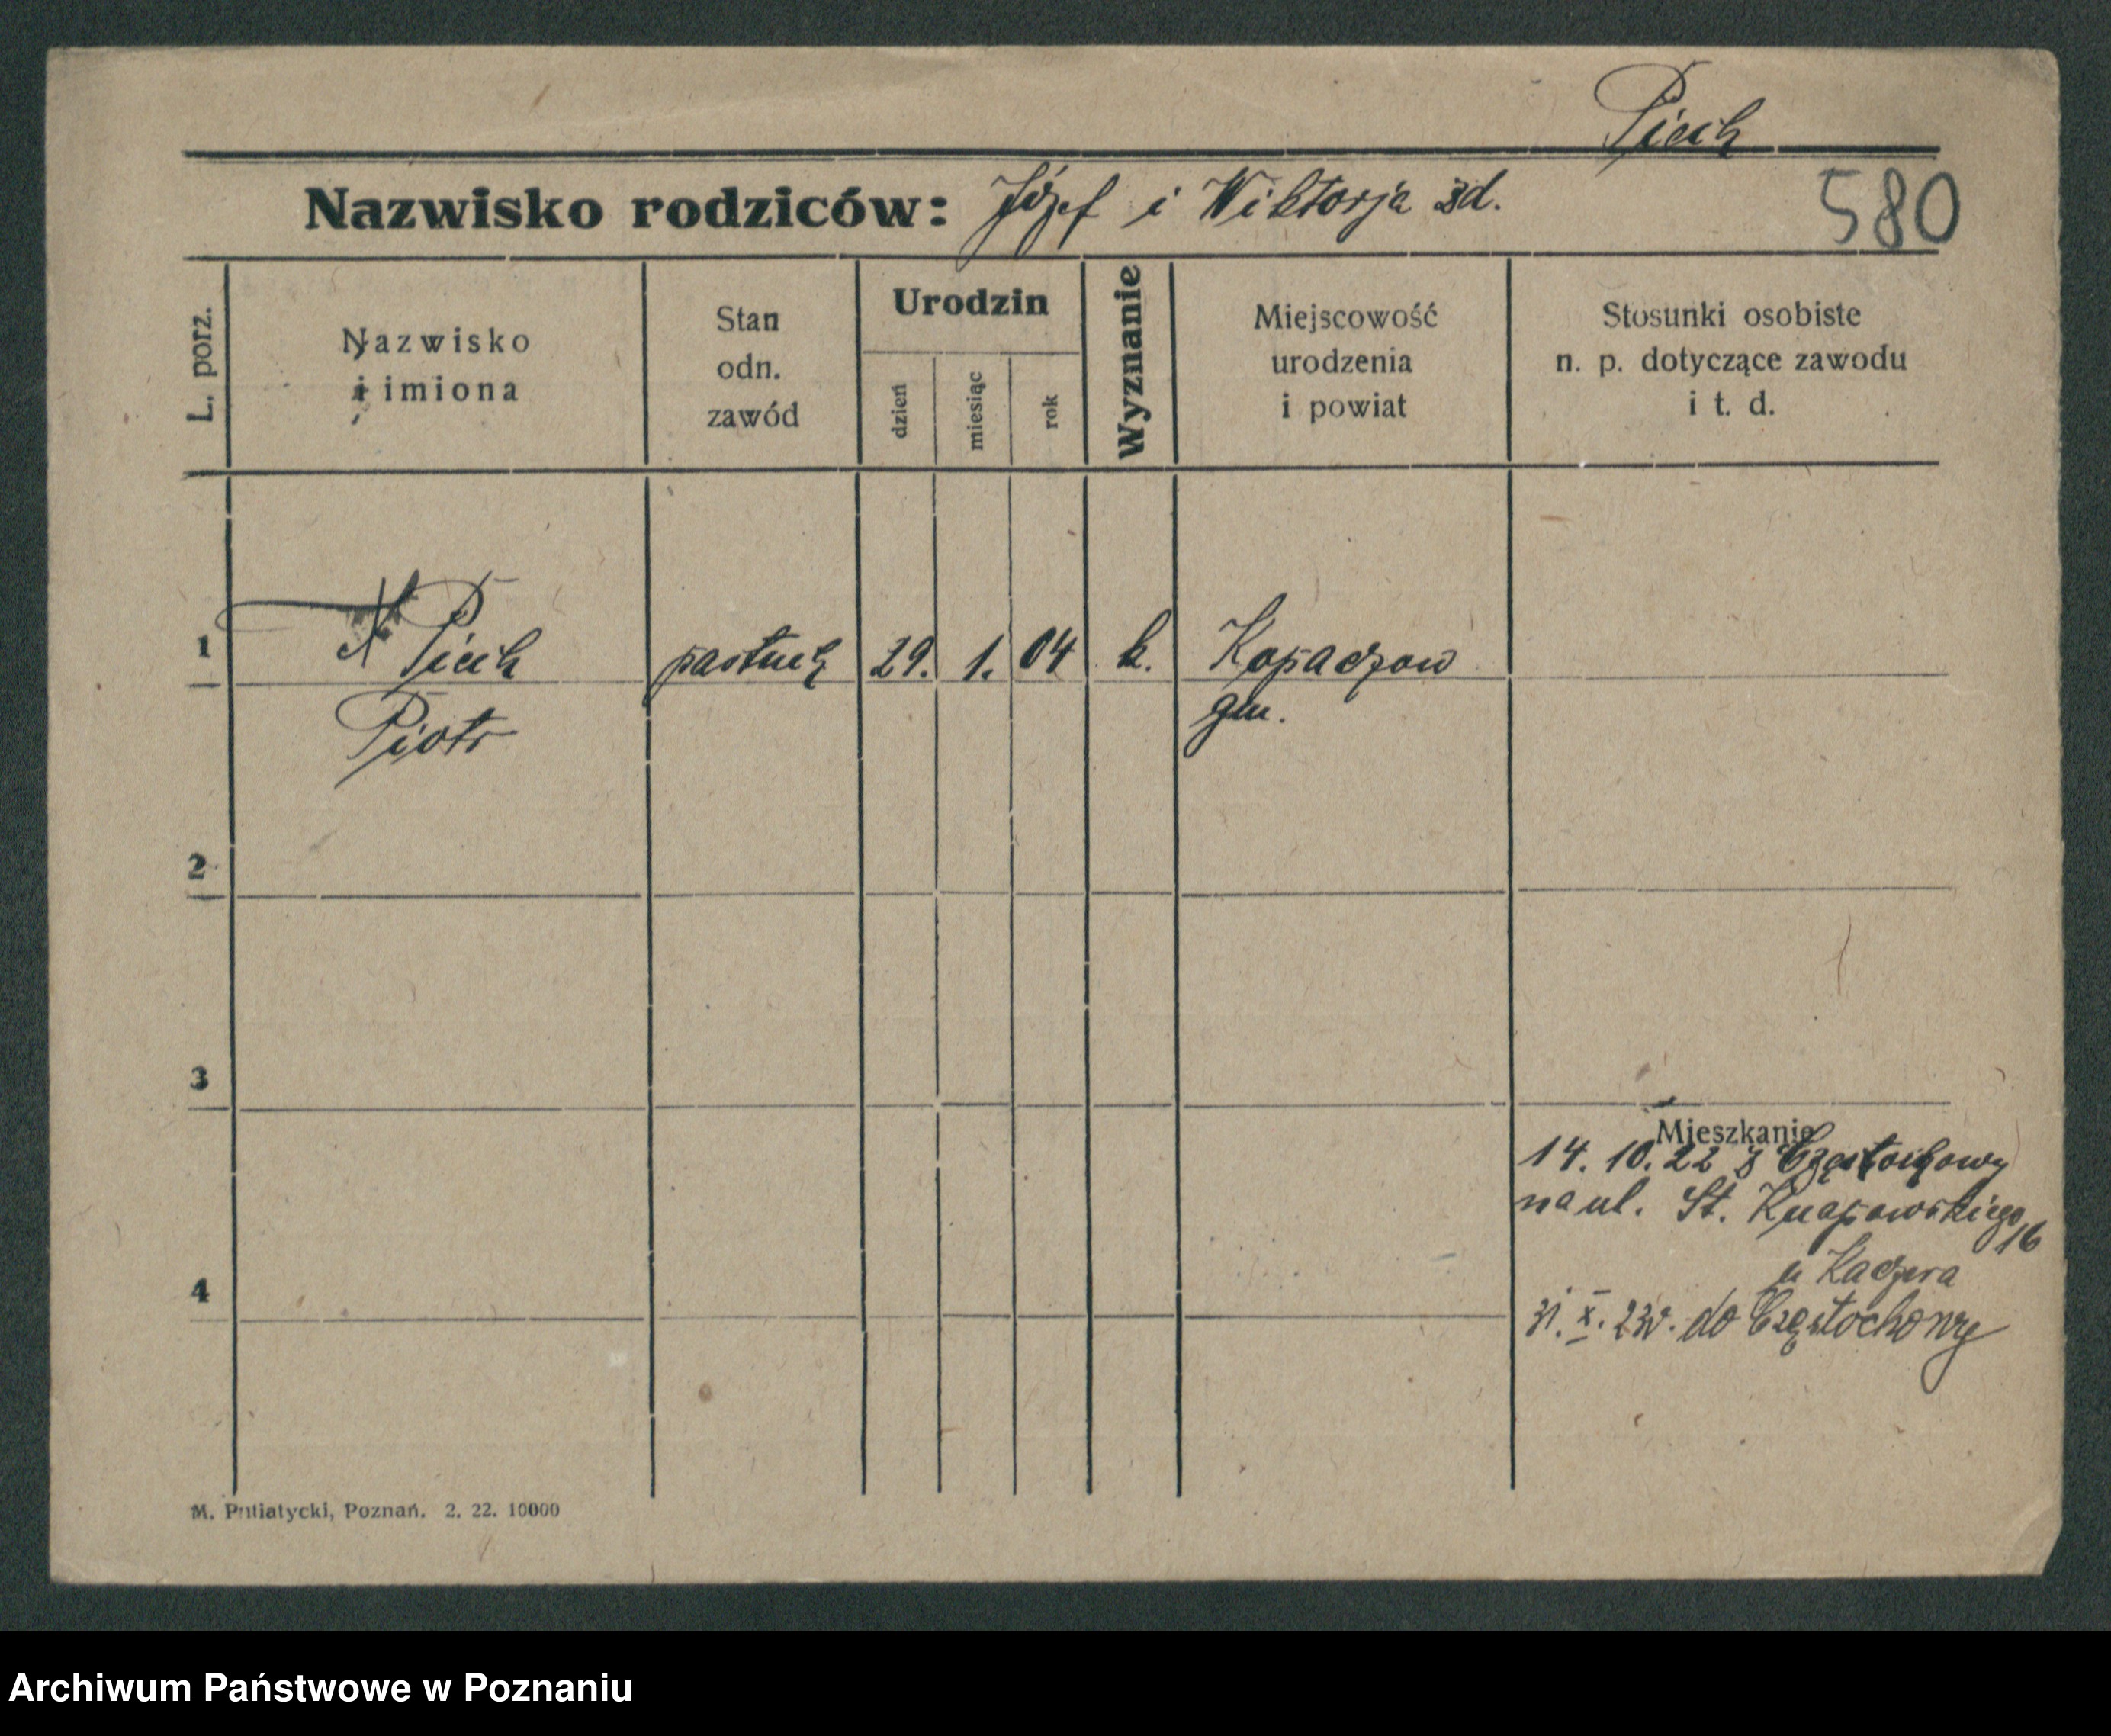 Piech
Nazwisko rodziców: Józef i Wiktorja zd.
580
L. porz.
Nazwisko
i imiona
Stan
odn.
zawód
Urodzin
dzień
miesiąc
rok
Wyznanie
Miejscowość
urodzenia
i powiat
Stosunki osobiste
n. p. dotyczące zawodu
i t. d.
1 Piech pastuch 29. 1. 04 k. Kopaczow
Piotr gm.
2
3
Mieszkanie
14. 10. 22 z Częstochowy
na ul. St. Knapowskiego 16
u Kaczera
4
31. X. 23r. do Częstochowy
M. Putiatycki, Poznań. 2. 22. 10000
Archiwum Państwowe w Poznaniu